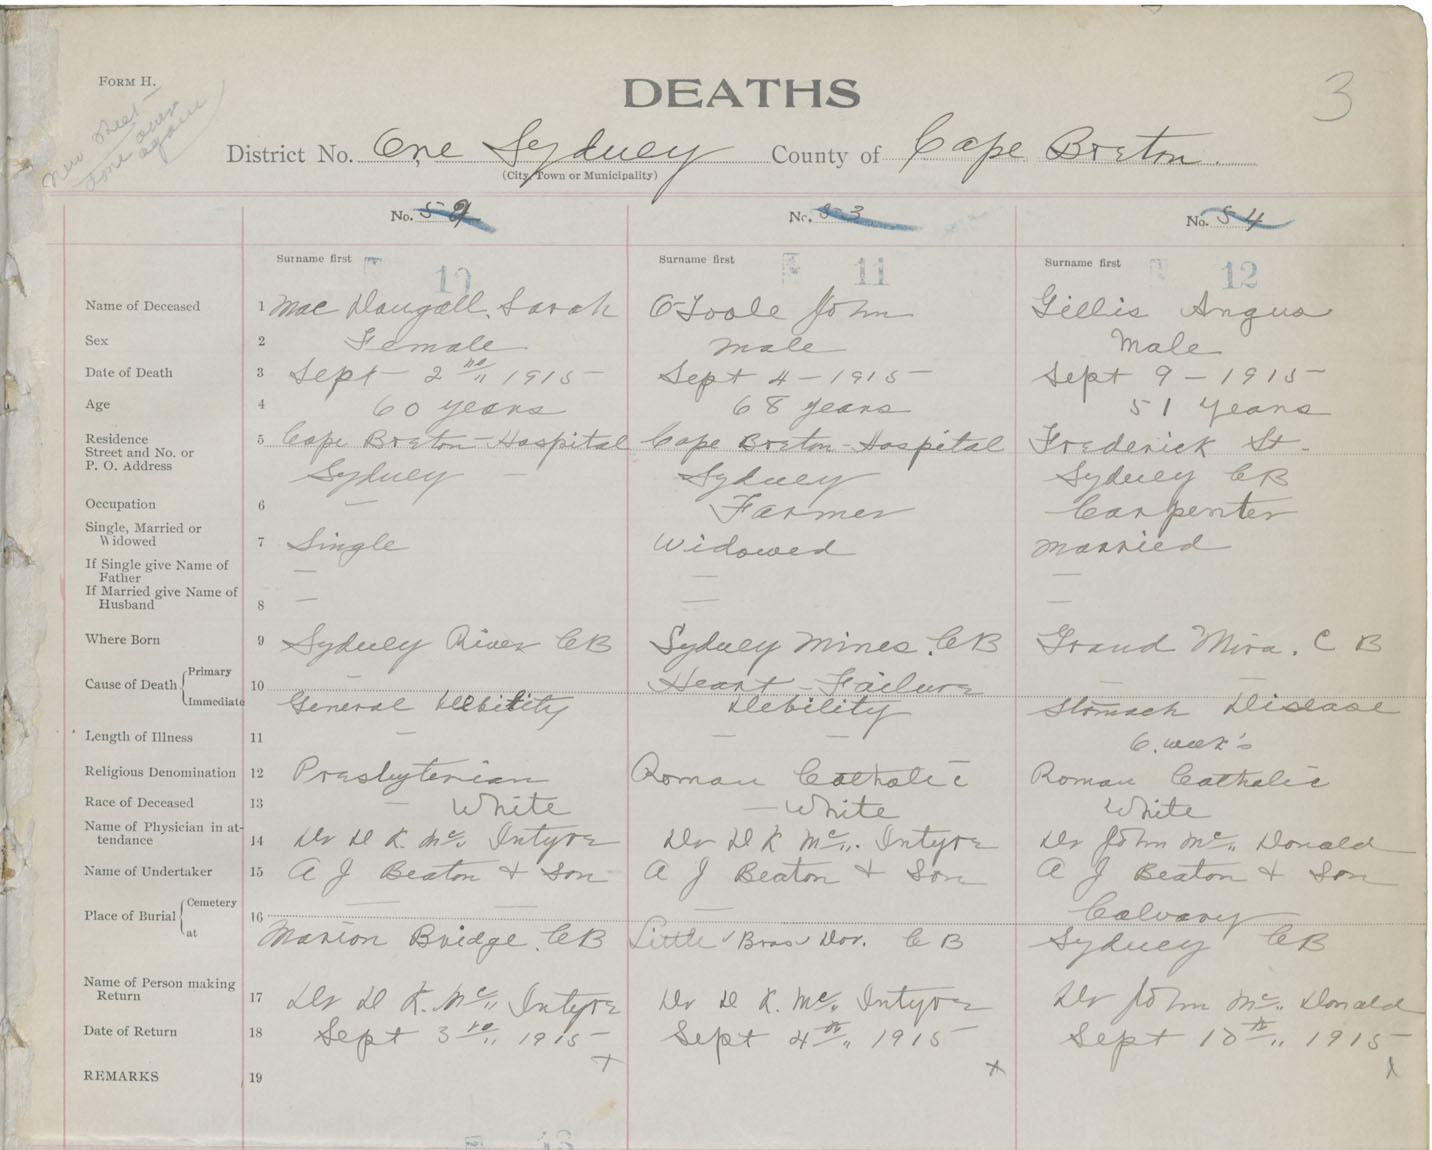 FORM H.
DEATHS
3
new sheet
done over
again
District No. One Sydney County of Cape Breton.
(City, Town or Municipality)
No. 52 No. 53 No. 54
Surname first 10 Surname first 11 Surname first 12
Name of Deceased 1 Mac Dougall, Sarah O'Toole John Gillis Angus
Sex 2 Female male Male
Date of Death 3 Sept 2nd 1915 Sept 4 - 1915 Sept 9 - 1915
Age 4 60 years 68 years 51 years
Residence 5 Cape Breton - Hospital Cape Breton - Hospital Frederick St.
Street and No. or
P. O. Address Sydney - Sydney Sydney CB
Occupation 6 — Farmer Carpenter
Single, Married or
Widowed 7 Single Widowed married
If Single give Name of
Father — — —
If Married give Name of
Husband 8 — — —
Where Born 9 Sydney River CB Sydney Mines. CB Grand Mira. C B
Cause of Death Primary 10 — Heart - Failure — —
Immediate General Debility Debility Stomach Disease
Length of Illness 11 — — — 6. week's
Religious Denomination 12 Presbyterian Roman Catholic Roman Catholic
Race of Deceased 13 — White — White White
Name of Physician in at-
tendance 14 Dr D K. Mc Intyre Dr D K Mc. Intyre Dr John Mc Donald
Name of Undertaker 15 A J Beaton + Son A J Beaton + Son A J Beaton + Son
Place of Burial Cemetery 16 — — — — Calvary
at Marion Bridge. CB Little Bras Dor. C B Sydney CB
Name of Person making
Return 17 Dr D K. Mc Intyre Dr D K. Mc Intyre Dr John Mc Donald
Date of Return 18 Sept 3rd 1915 Sept 4th 1915 Sept 10th 1915
REMARKS 19 x x x